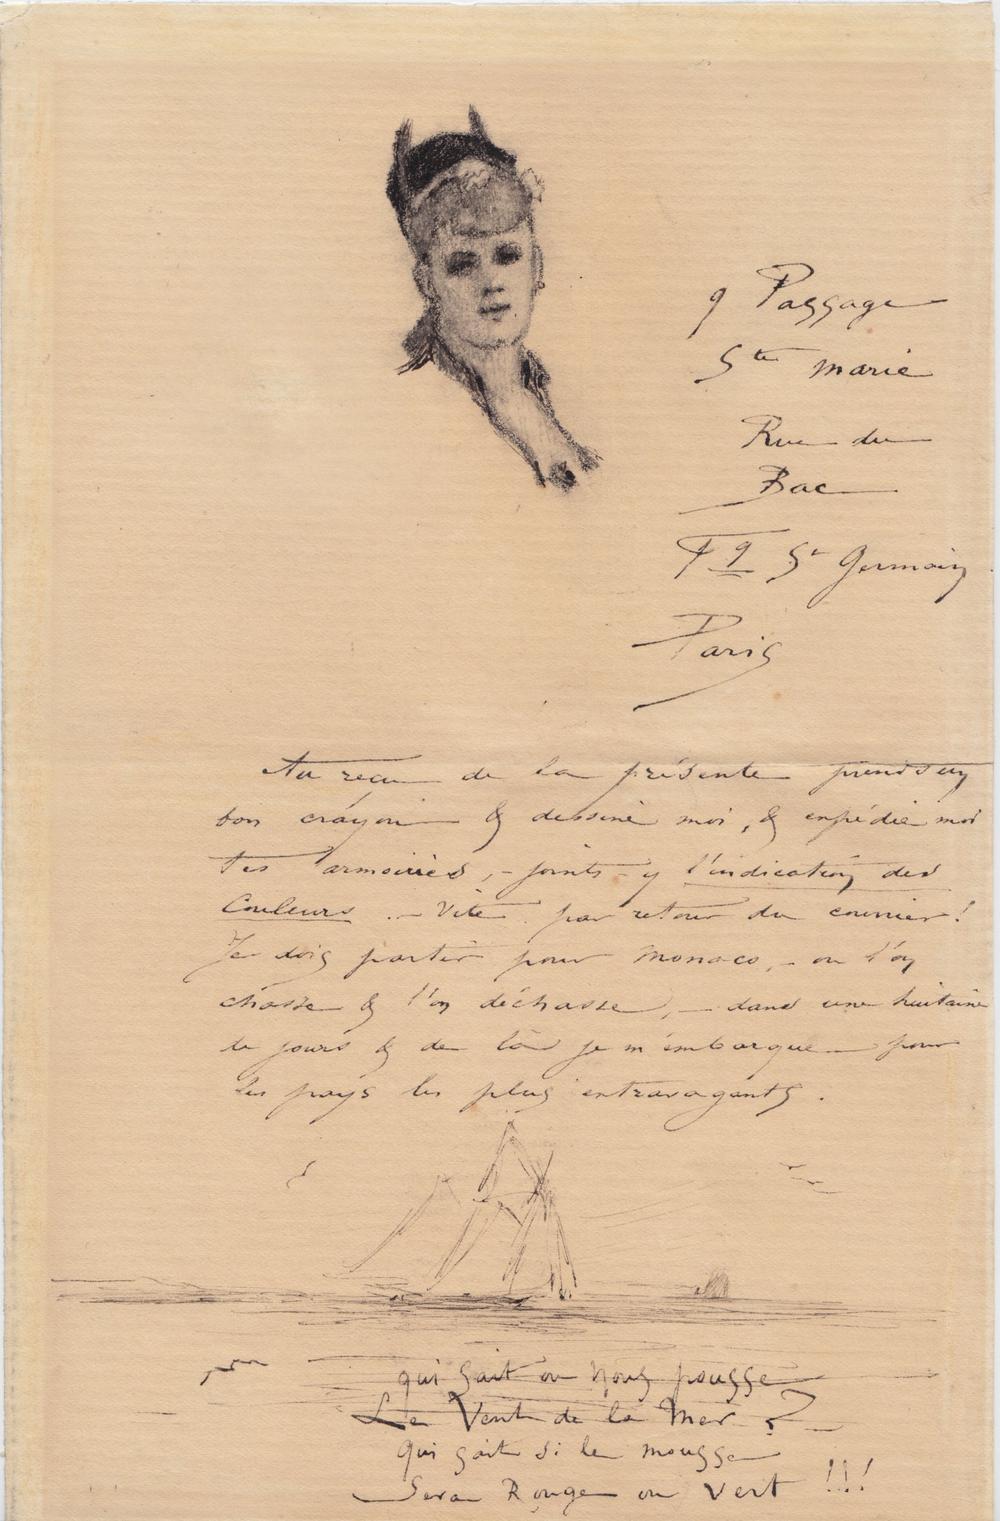 9 Passage
Ste marie
Rue du
Bac
Fg St Germain
Paris
Au reçu de la présente prends un
bon crayon & dessine moi, & expédie moi
tes armoiries, - joints-y l'indication des
Couleurs. - Vite par retour du courrier!
Je dois partir pour Monaco, - ou l'on
chasse & l'on déchasse, - dans une huitaine
de jours & de là je m'embarque pour
les pays les plus extravagants.
qui sait ou nous pousse
Le Vent de la Mer ?
Qui sait si le mousse
Sera Rouge ou vert !!!